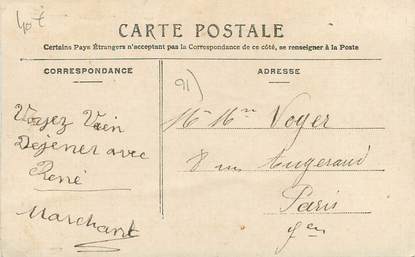 40 €
CARTE POSTALE
Certains Pays Étrangers n'acceptant pas la Correspondance de ce côté, se renseigner à la Poste
CORRESPONDANCE
Voyez Vain
Dejener avec
René
Marchant
91)
ADRESSE
Mr Mme Voyer
8 rue Augeraud
Paris
7em